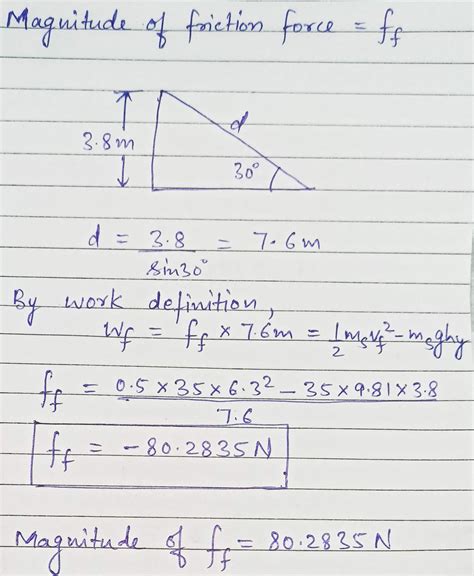 Magnitude of friction force = f_f
3.8m
d
30°
d = 3.8 / sin30° = 7.6m
By work definition,
W_f = f_f × 7.6m = 1/2 m_s v_f² - m_s ghy
f_f = 0.5 × 35 × 6.3² - 35 × 9.81 × 3.8 / 7.6
f_f = -80.2835N
Magnitude of f_f = 80.2835N